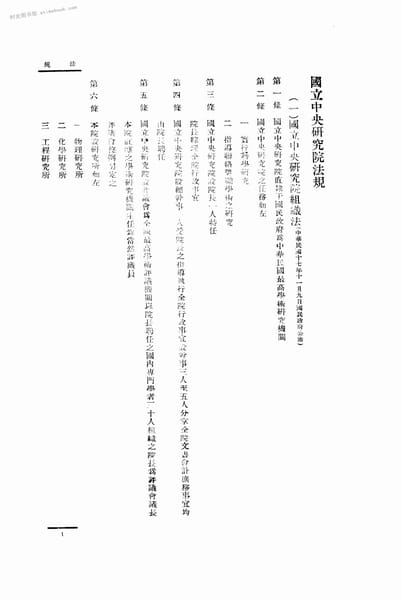 國立中央研究院法規
（一）國立中央研究院組織法（中華民國十七年十一月九日國民政府公布）
第一條 國立中央研究院直隸于國民政府爲中華民國最高學術研究機關
第二條 國立中央研究院之任務如左
一 實行科學研究
二 指導聯絡獎勵學術之研究
第三條 國立中央研究院設院長一人特任
院長綜理全院行政事宜
第四條 國立中央研究院設總幹事一人受院長之指導執行全院行政事宜設幹事三人至五人分掌全院文書會計庶務事宜均
由院長聘任
第五條 國立中央研究院設評議會爲全國最高學術評議機關以院長聘任之國內專門學者三十人組織之院長爲評議會議長
本院直轄之學術研究機關主任爲當然評議員
評議會條例另定之
第六條 本院設研究所如左
一 物理研究所
二 化學研究所
三 工程研究所
法規
1